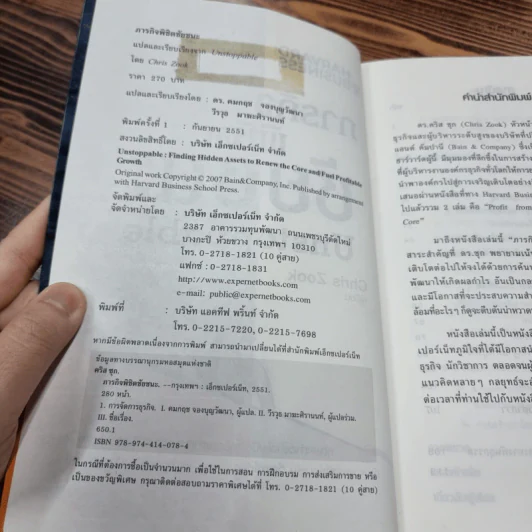 ภารกิจพิชิตชัยชนะ
แปลและเรียบเรียงจาก Unstoppable
โดย Chris Zook
ราคา 270 บาท
แปลและเรียบเรียงโดย : ดร. คมกฤช จองบุญวัฒนา
วีรวุธ มาฆะศิรานนท์
พิมพ์ครั้งที่ 1 : กันยายน 2551
สงวนลิขสิทธิ์โดย : บริษัท เอ็กซเปอร์เน็ท จำกัด
Unstoppable : Finding Hidden Assets to Renew the Core and Fuel Profitable
Growth
Original work Copyright © 2007 Bain&Company, Inc. Published by arrangement
with Harvard Business School Press.
จัดพิมพ์และ
จัดจำหน่ายโดย : บริษัท เอ็กซเปอร์เน็ท จำกัด
2387 อาคารรวมทุนพัฒนา ถนนเพชรบุรีตัดใหม่
บางกะปิ ห้วยขวาง กรุงเทพฯ 10310
โทร. 0-2718-1821 (10 คู่สาย)
แฟกซ์ : 0-2718-1831
http://www.expernetbooks.com
e-mail: public@expernetbooks.com
พิมพ์ที่ : บริษัท แอคทีฟ พริ้นท์ จำกัด
โทร. 0-2215-7220, 0-2215-7698
หากมีข้อผิดพลาดเนื่องจากการพิมพ์ สามารถนำมาเปลี่ยนได้ที่สำนักพิมพ์เอ็กซเปอร์เน็ท
ข้อมูลทางบรรณานุกรมหอสมุดแห่งชาติ
คริส ซุก.
ภารกิจพิชิตชัยชนะ. --กรุงเทพฯ : เอ็กซเปอร์เน็ท, 2551.
280 หน้า.
1. การจัดการธุรกิจ. I. คมกฤช จองบุญวัฒนา, ผู้แปล. II. วีรวุธ มาฆะศิรานนท์, ผู้แปลร่วม.
III. ชื่อเรื่อง.
650.1
ISBN 978-974-414-078-4
ในกรณีที่ต้องการซื้อเป็นจำนวนมาก เพื่อใช้ในการสอน การฝึกอบรม การส่งเสริมการขาย หรือ
เป็นของขวัญพิเศษ กรุณาติดต่อสอบถามราคาพิเศษได้ที่ โทร. 0-2718-1821 (10 คู่สาย)
คำนำสำนักพิมพ์
ดร.คริส ซุก (Chris Zook) หัวหน้า
ธุรกิจและผู้บริหารระดับสูงของบริษัทที่
แอนด์ คัมปานี (Bain & Company) ซึ่ง
ที่ผู้บริหารองค์กรธุรกิจทั่วโลกให้การ
นำพาองค์กรไปสู่การเจริญเติบโตอย่าง
เสนอผ่านหนังสือที่ทาง Harvard Busin
ไปแล้วรวม 2 เล่ม คือ "Profit from
Core"
มาถึงหนังสือเล่มนี้ "ภารกิ
สาระสำคัญที่ ดร.ซุก พยายามเน้
เติบโตต่อไปให้จงได้ด้วยการค้น
พัฒนาให้เกิดผลกำไร อันเป็นกล
และมีโอกาสที่จะประสบความ
ล้อมที่อะไรๆ ก็ดูจะตีบตันน่าหวา
หนังสือเล่มนี้เป็นหนังสื
เปอร์เน็ทภูมิใจที่ได้มีโอกาสน
ธุรกิจ นักวิชาการ ตลอดจนผู้
แนวคิดหลายๆ กลยุทธ์จะ
ต่อเวลาที่ท่านใช้ไปกับหนัง